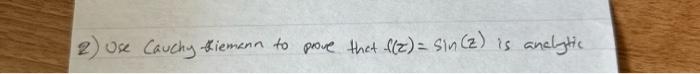 2) Use Cauchy-Riemann to prove that f(z) = sin(z) is analytic